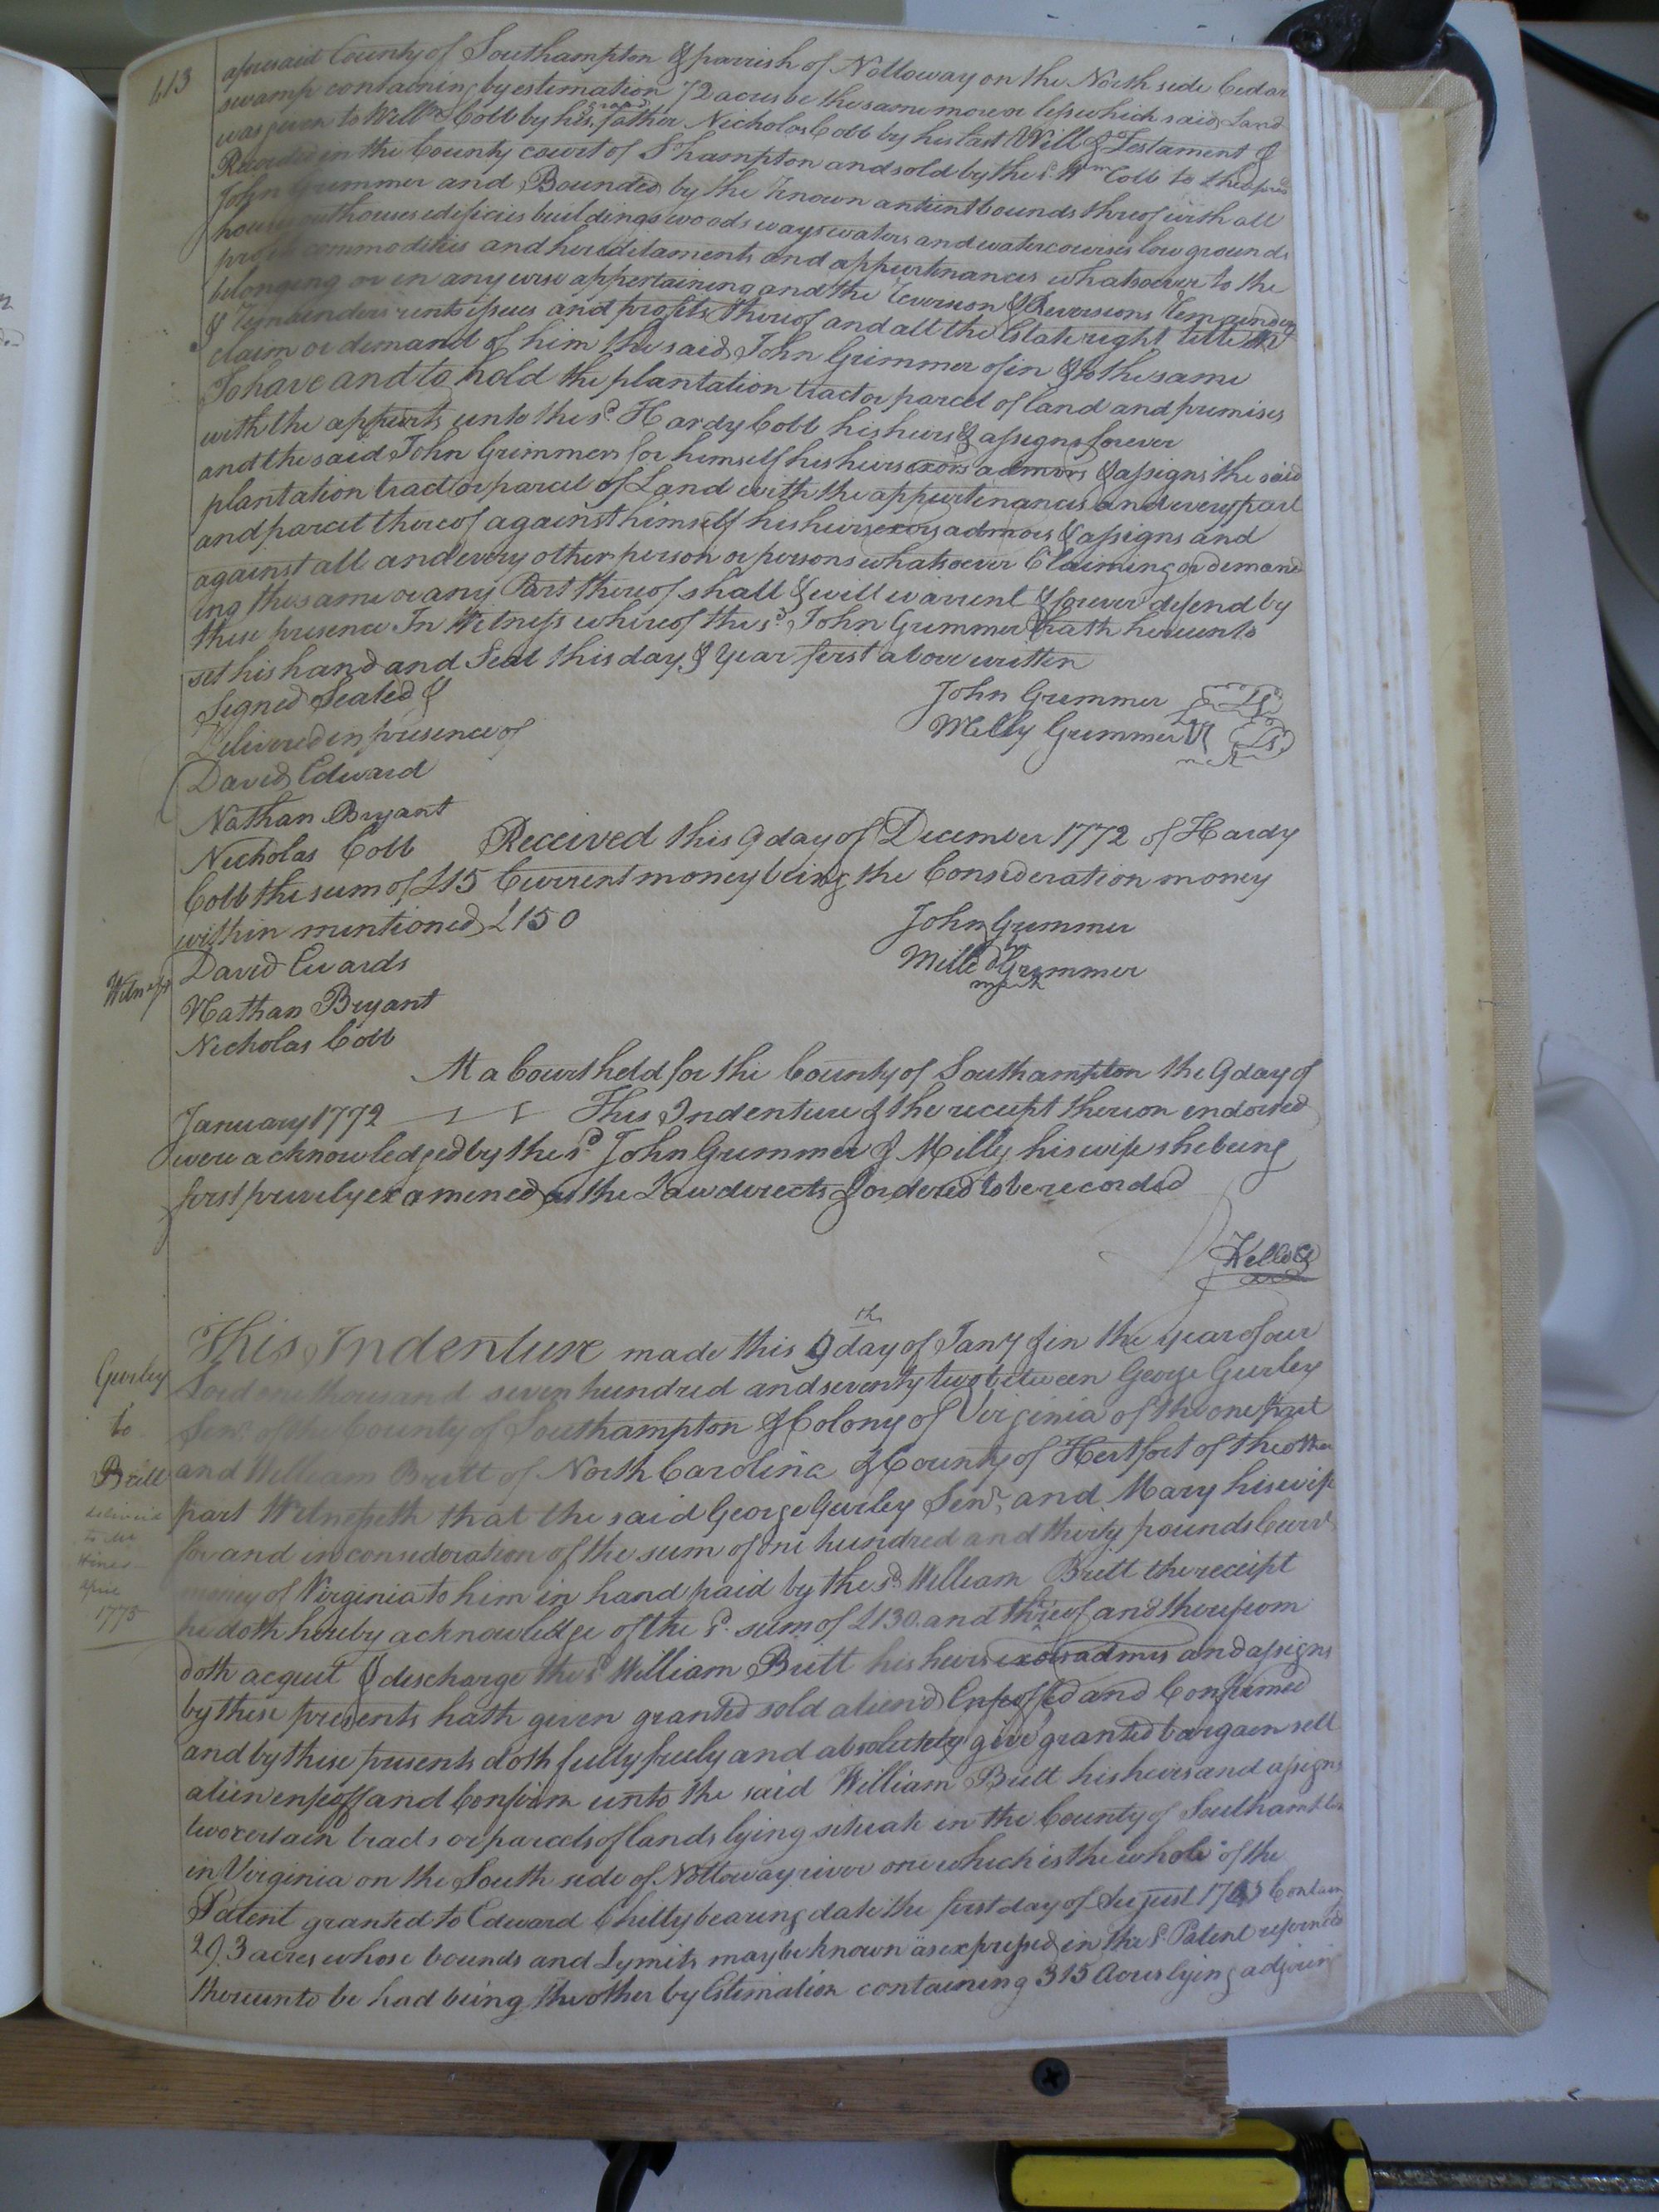 113
aforesaid County of Southampton & parrish of Nottoway on the North side Cedar
swamp containing by estimation 72 acres be the same more or less which said Land
was given to Willm Cobb by his grand father Nicholas Cobb by his last Will & Testament &
Recorded in the County court of S hampton and sold by the sd Wm Cobb to the
John Grimmer and Bounded by the known antient bounds thereof with all
houses outhouses edificies buildings woods ways waters and watercourses low grounds
profits commodities and hereditaments and appurtenances whatsoever to the
belonging or in any wise appertaining and the reversion & Reversions remainder
& remainders rents issues and profits thereof and all the Estate right title
claim or demand of him the said John Grimmer of in & to the same
To have and to hold the plantation tract or parcel of land and premises
with the appurts unto the sd Hardy Cobb his heirs & assigns forever
and the said John Grimmer for himself his heirs exors admors & assigns the said
plantation tract or parcel of Land with the appurtenances and every part
and parcel thereof against himself his heirs exors admors & assigns and
against all and every other person or persons whatsoever Claiming or demand
ing the same or any Part thereof shall & will warrent & forever defend by
these presence In Witness whereof the sd John Grimmer hath hereunto
set his hand and Seal this day & year first above written
Signed Sealed &
Delivered in presence of
John Grimmer Ls
Milly Grimmer Ls
David Edward
Nathan Bryant
Nicholas Cobb Received this 9 day of December 1772 of Hardy
Cobb the sum of £15 Current money being the Consideration money
within mentioned £150
John Grimmer
Mille Grimmer
mark
Witness David Ewards
Nathan Bryant
Nicholas Cobb
At a Court held for the County of Southampton the 9 day of
January 1772 This Indenture & the receipt thereon endorsed
were acknowledged by the sd John Grimmer & Milly his wife she being
first privily examined as the Law directs & ordered to be recorded
Gurley
to
Britt
to
1775
This Indenture made this 9th day of Jany & in the year of our
Lord one thousand seven hundred and seventy two between George Gurley
Senr of the County of Southampton & Colony of Virginia of the one part
and William Britt of North Carolina & County of Hertfort of the other
part Witnesseth that the said George Gurley Senr and Mary his wife
for and in consideration of the sum of one hundred and thirty pounds Curr
money of Virginia to him in hand paid by the sd William Britt the receipt
he doth hereby acknowledge of the sd sum of £130. and thereof and therefrom
doth acquit & discharge the sd William Britt his heirs exors admrs and assigns
by these presents hath given granted sold aliend Enfeoffed and Confirmed
and by these presents doth fully freely and absolutely give granted bargain sell
alien enfeoff and Confirm unto the said William Britt his heirs and assigns
two certain tracts or parcels of lands lying situate in the County of Southampton
in Virginia on the South side of Nottoway river one which is the whole of the
Patent granted to Edward Chitty bearing date the first day of August Contain
293 acres whose bounds and Lymits may be known as expressed in the sd Patent
thereunto be had being the other by Estimation containing 315 Acres lying adjoining